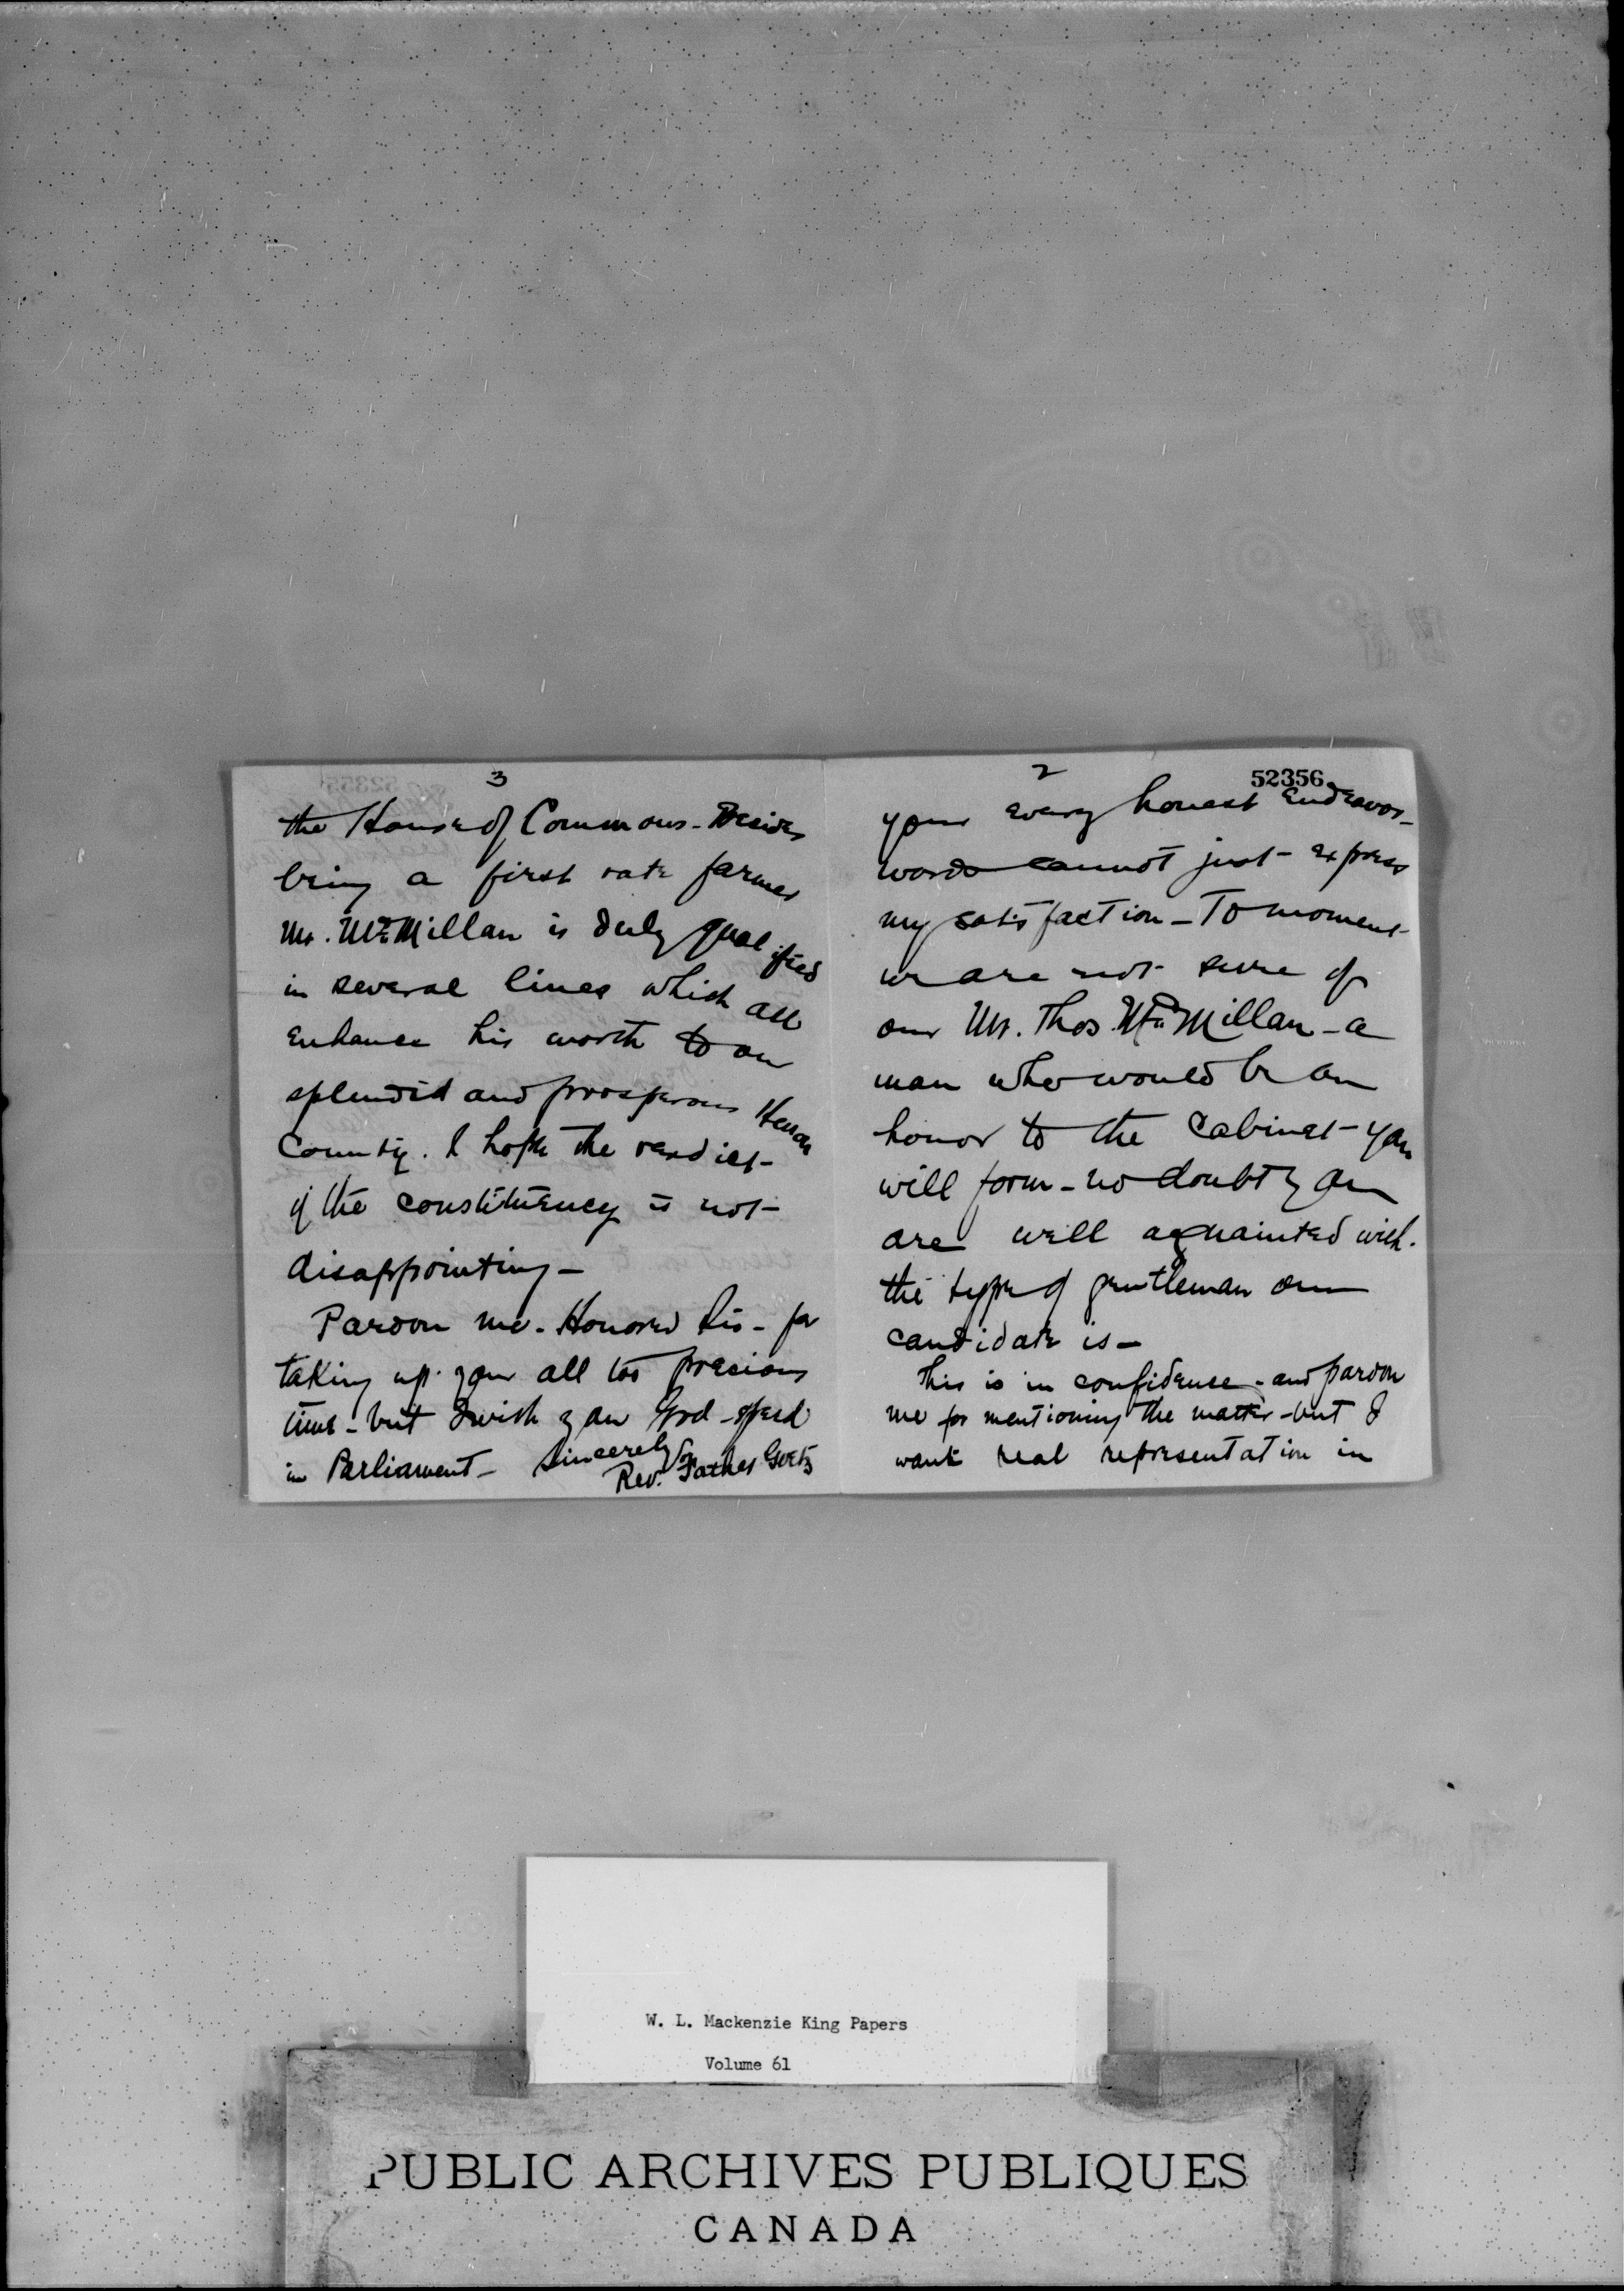 3
the House of Commons - Besides
being a first rate farmer
Mr. McMillan is duly qualified
in several lines which all
enhance his worth to our
splendid and prosperous Huron
County. I hope the verdict
of the constituency is not
disappointing -
Pardon me - Honored Sir - for
taking up your all too precious
time - but I wish you God-speed
in Parliament - Sincerely
Rev. Father Goetz
2
52356
your every honest endeavor -
words cannot just express
my satisfaction - To moment
we are not sure of
our Mr. Thos. McMillan - a
man who would be an
honor to the Cabinet you
will form - no doubt you
are well acquainted with
the type of gentleman our
candidate is -
This is in confidence - and pardon
me for mentioning the matter - but I
want real representation in
W. L. Mackenzie King Papers
Volume 61
PUBLIC ARCHIVES PUBLIQUES
CANADA